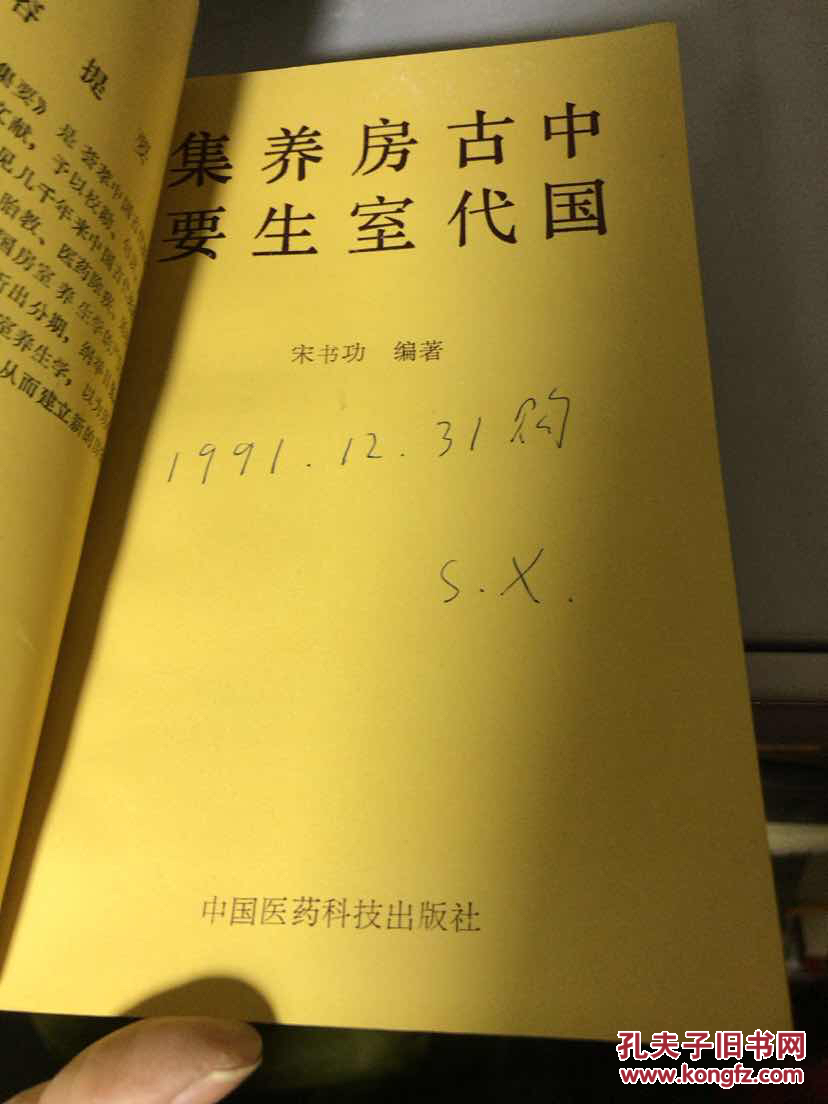 容提要
集要》是荟萃中国古
文献，予以校勘
见几千年来中国古代
胎教、医药除疾
国房室养生学的产
析出分期，纲举目
室养生学，以为
从而建立新的
中国
古代
房室
养生
集要
宋书功 编著
1991.12.31购
S.X.
中国医药科技出版社
孔夫子旧书网
www.kongfz.com